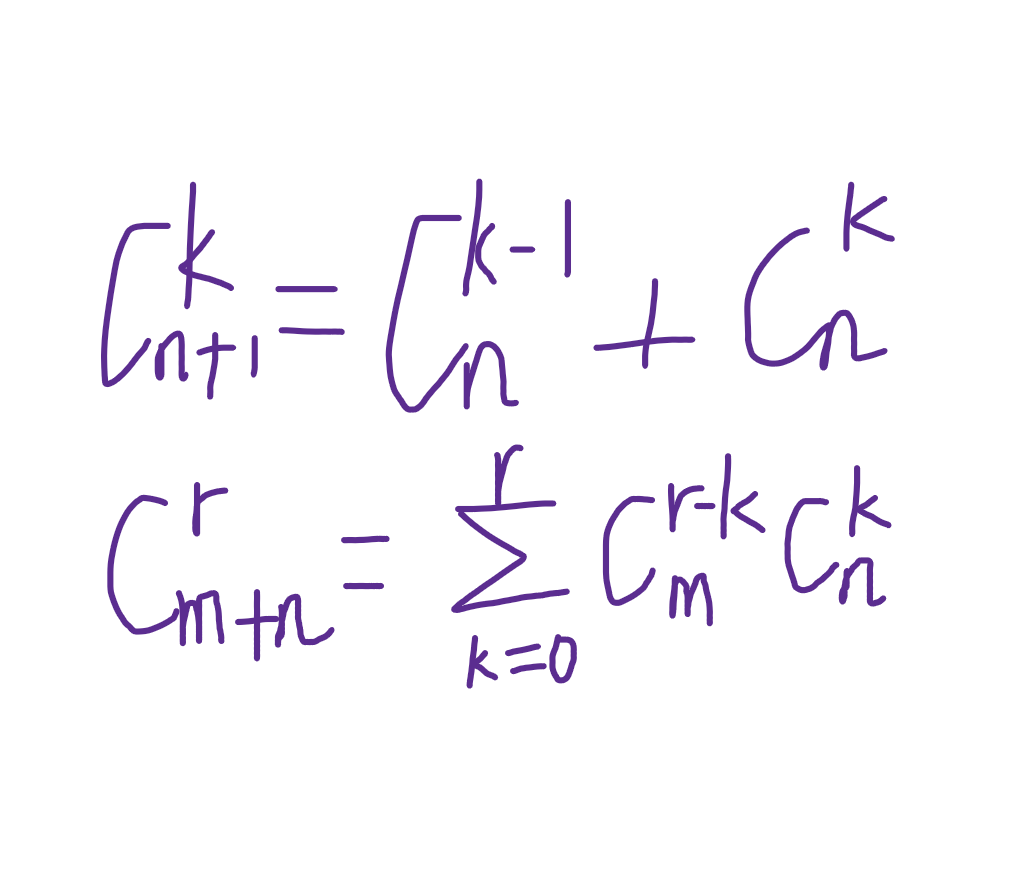 C_{n+1}^{k} = C_{n}^{k-1} + C_{n}^{k}
C_{m+n}^{r} = \sum_{k=0}^{r} C_{m}^{r-k} C_{n}^{k}